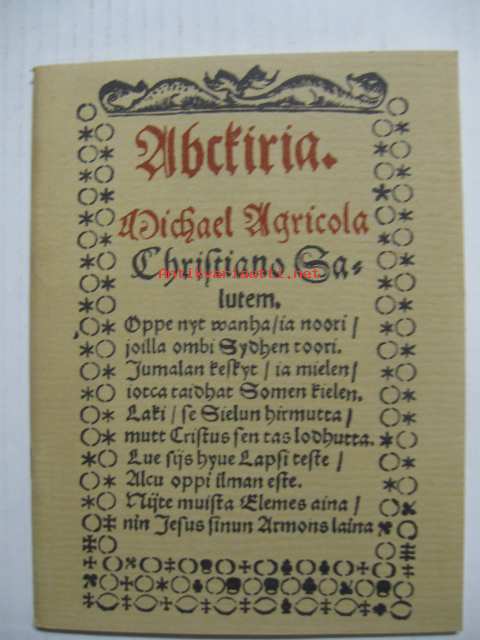 Abckiria.
Michael Agricola
Christiano Sa-
lutem.
Oppe nyt wanha / ia noori /
joilla ombi Sydhen toori.
Jumalan keskyt / ia mielen /
iotca taidhat Somen kielen.
Laki / se Sielun hirmutta /
mutt Cristus sen tas lodhutta.
Lue sijs hyue Lapsi teste /
Alcu oppi ilman este.
Nijte muista Elemes aina /
nin Jesus sinun Armons laina
Antikvariaatti.net